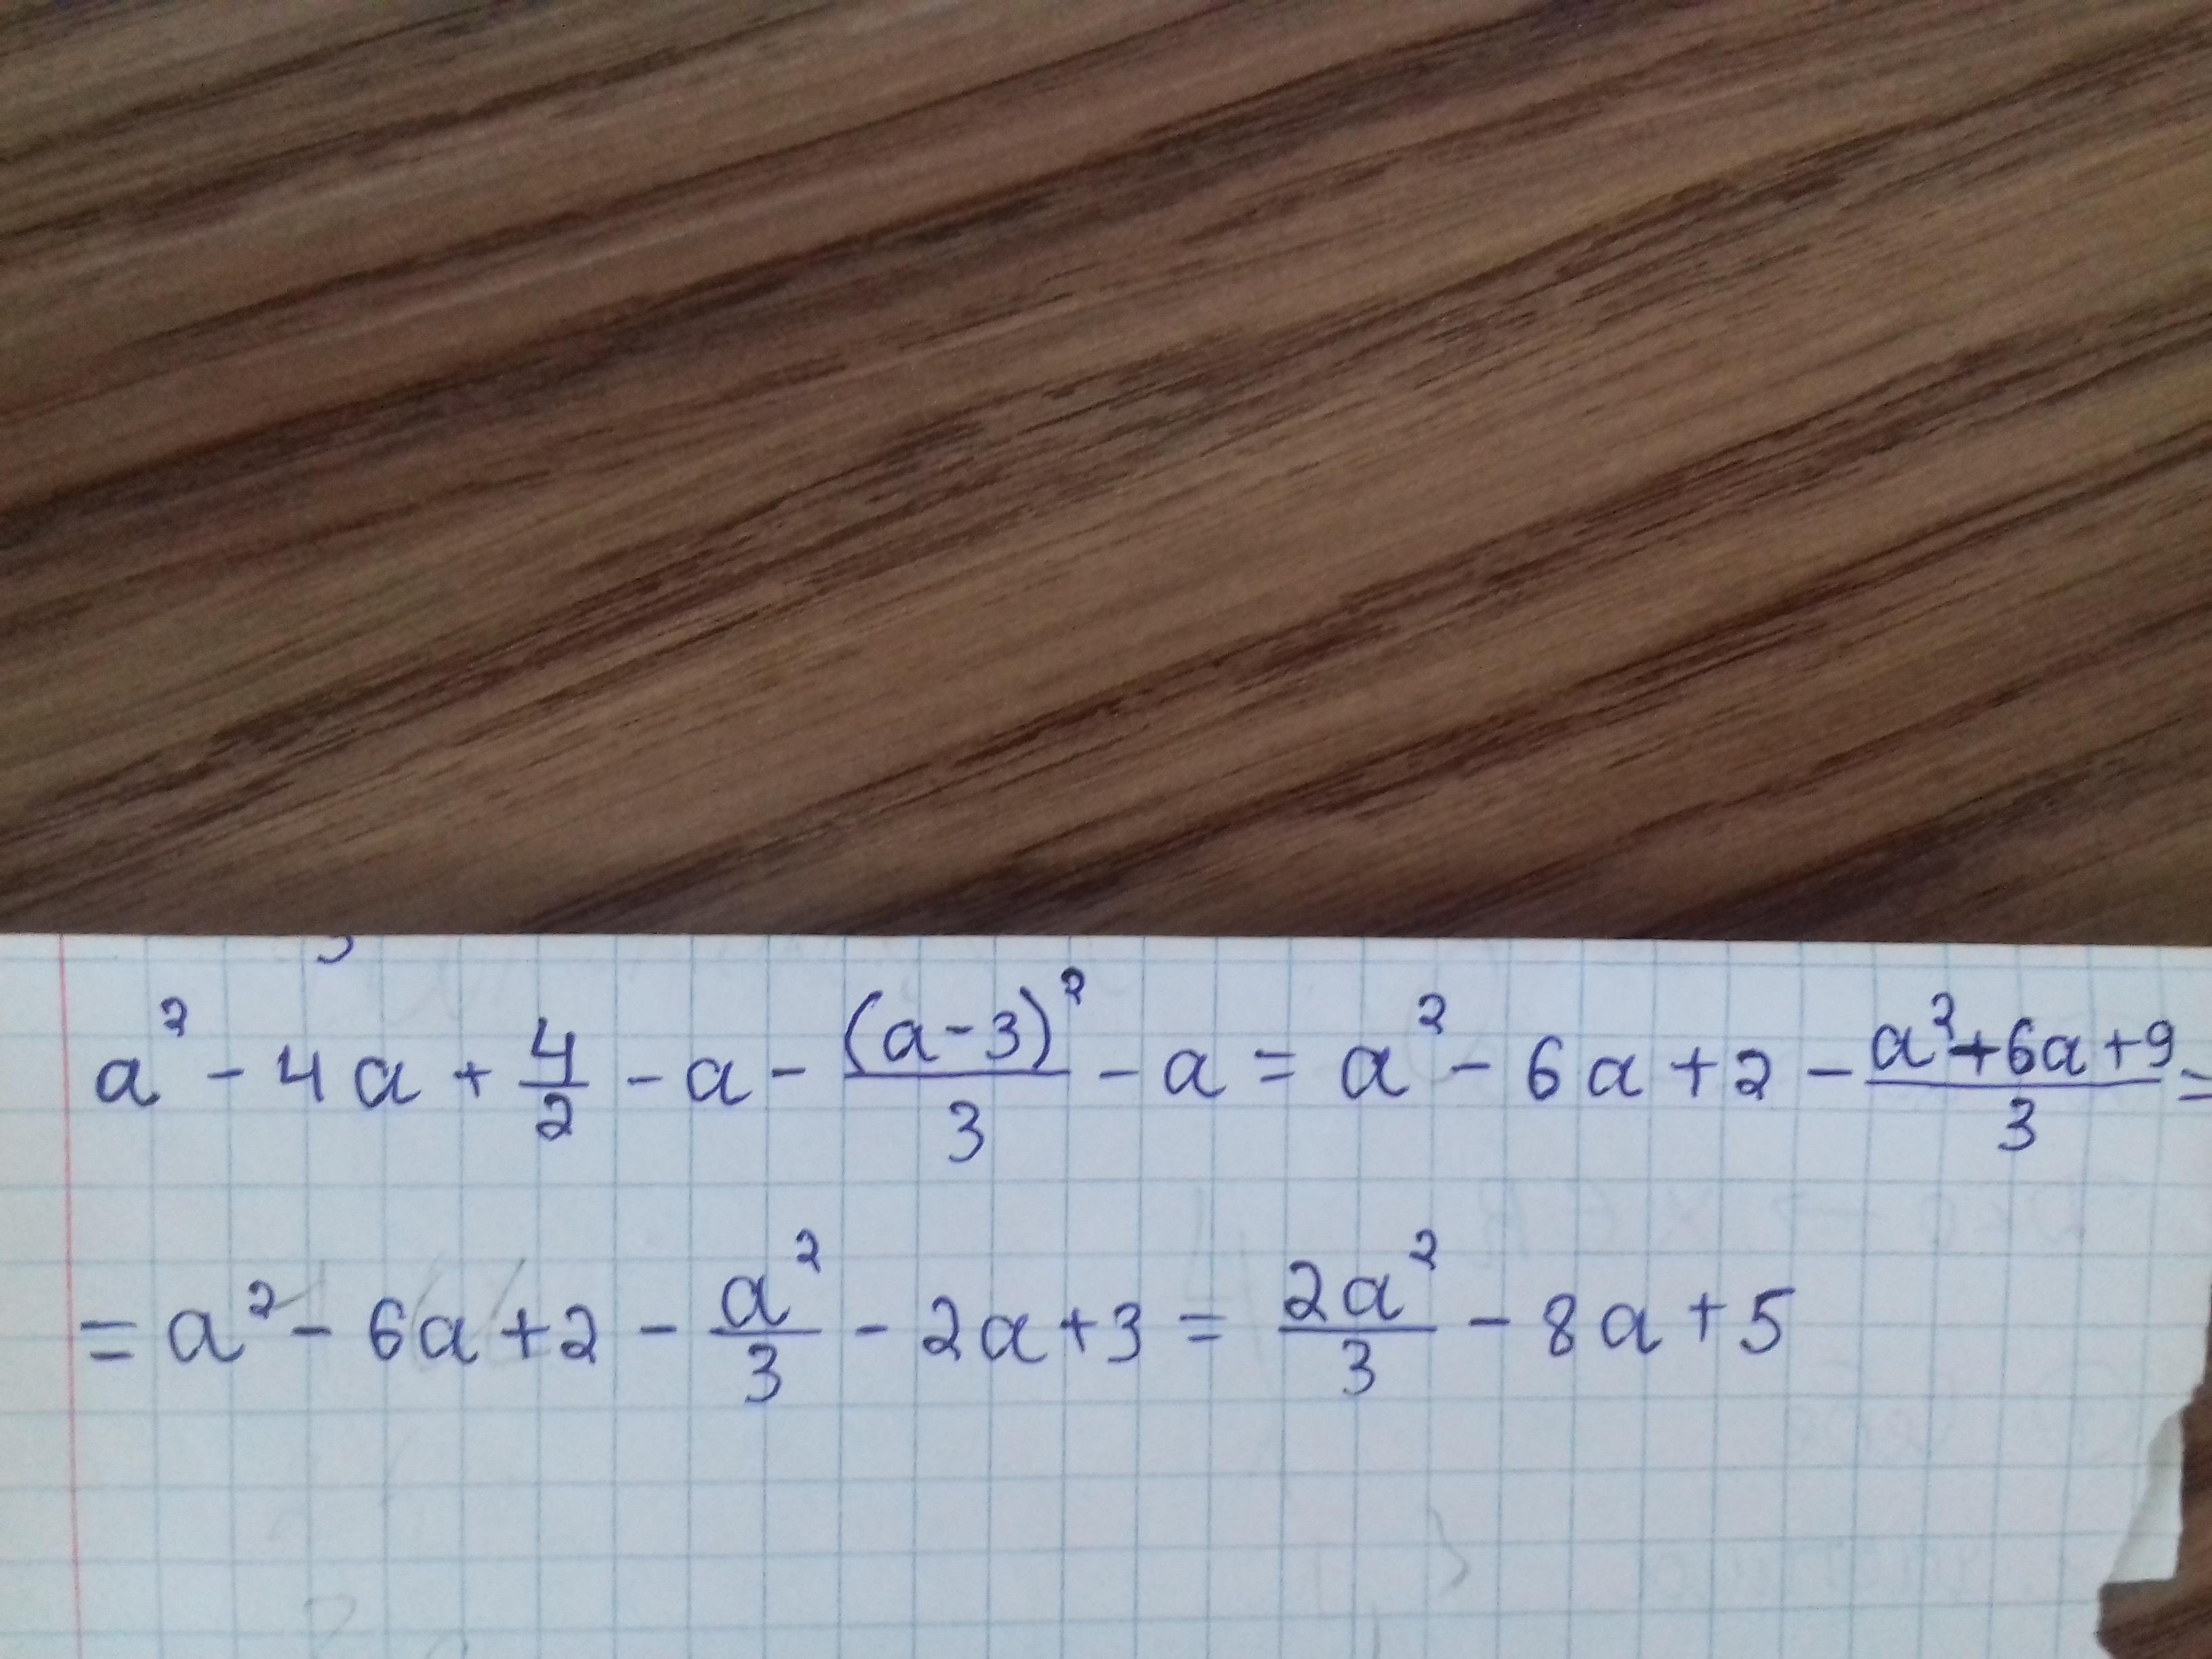 a² - 4a + 4/2 - a - (a-3)²/3 - a = a² - 6a + 2 - (a²+6a+9)/3 =
= a² - 6a + 2 - a²/3 - 2a + 3 = 2a²/3 - 8a + 5